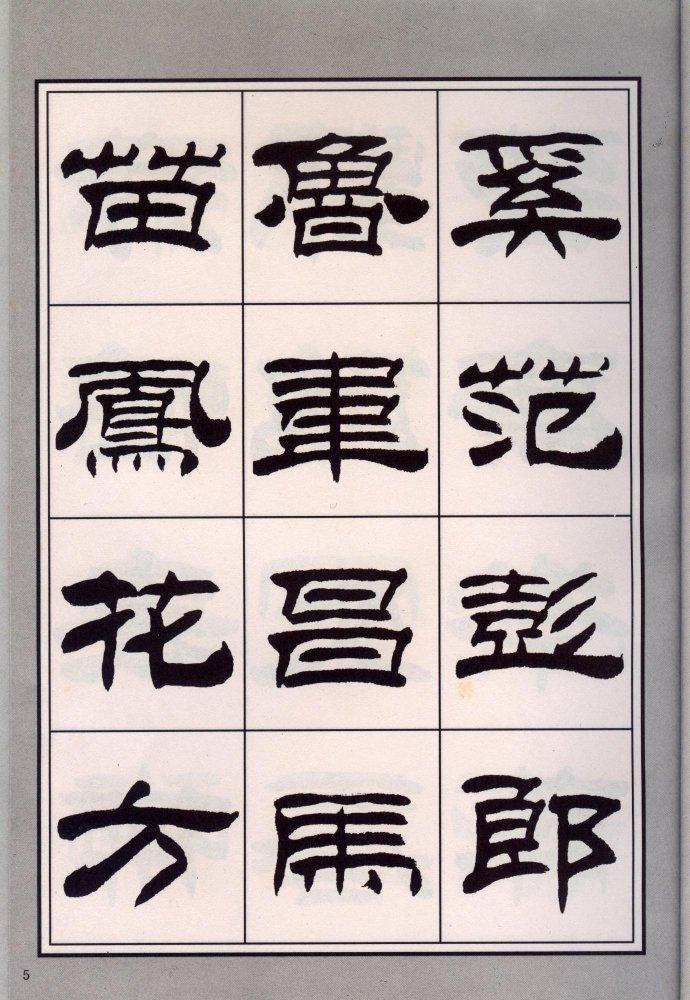 奚范彭郎
魯韋昌馬
苗鳳花方
5